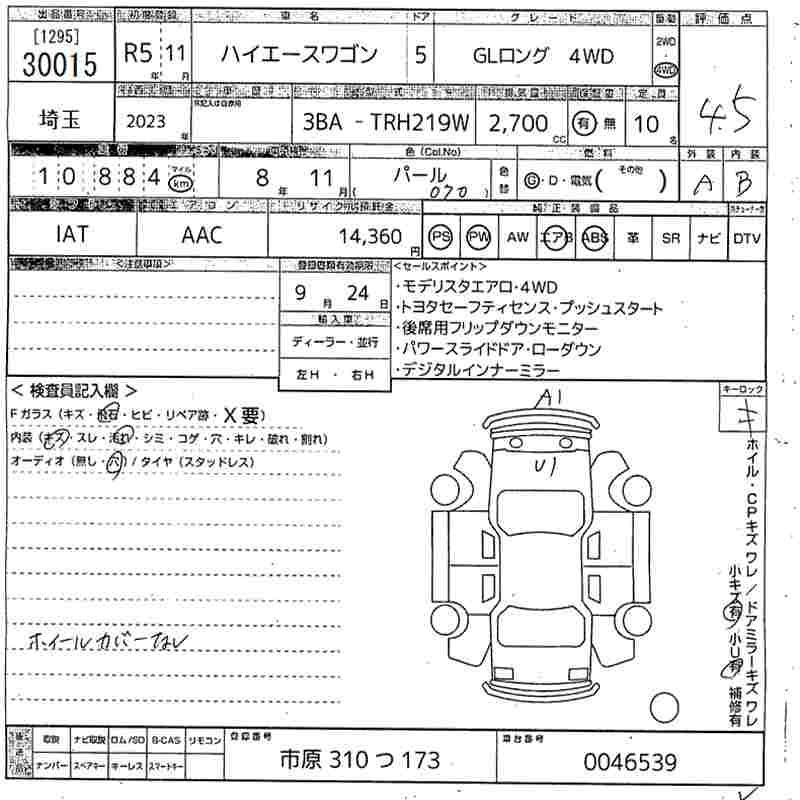 出品番号 初度登録 車名 ドア グレード 駆動 評価点
[1295]
30015 R5年 11月 ハイエースワゴン 5 GLロング 4WD 2WD 4WD 4.5
埼玉 2023年 3BA - TRH219W 2,700cc 有 無 定員 10名
色(Col.No) 燃料 外装 内装
10884 マイル km 8年 11月 パール 070 色替 G・D・電気( その他 ) A B
エアコン リサイクル預託金 純正装備品
IAT AAC 14,360円 PS PW AW エアB ABS 革 SR ナビ DTV
<注意事項> 登録書類有効期限 <セールスポイント>
9月 24日 ・モデリスタエアロ・4WD
・トヨタセーフティセンス・プッシュスタート
輸入車 ・後席用フリップダウンモニター
ディーラー・並行 ・パワースライドドア・ローダウン
左H・右H ・デジタルインナーミラー
<検査員記入欄> キーロック
キ
Fガラス(キズ・飛石・ヒビ・リペア跡・X要)
内装(キズ・スレ・汚れ・シミ・コゲ・穴・キレ・破れ・割れ)
オーディオ(無し・穴)/タイヤ(スタッドレス)
A1
U1
ホイールカバーなし
ホイル・CPキズワレ/ドアミラーキズワレ
小キズ有/小U有 補修有
後送品 取説 ナビ取説 ロム/SD B-CAS リモコン 登録番号 車台番号
ナンバー スペアキー キーレス スマートキー 市原 310 つ 173 0046539